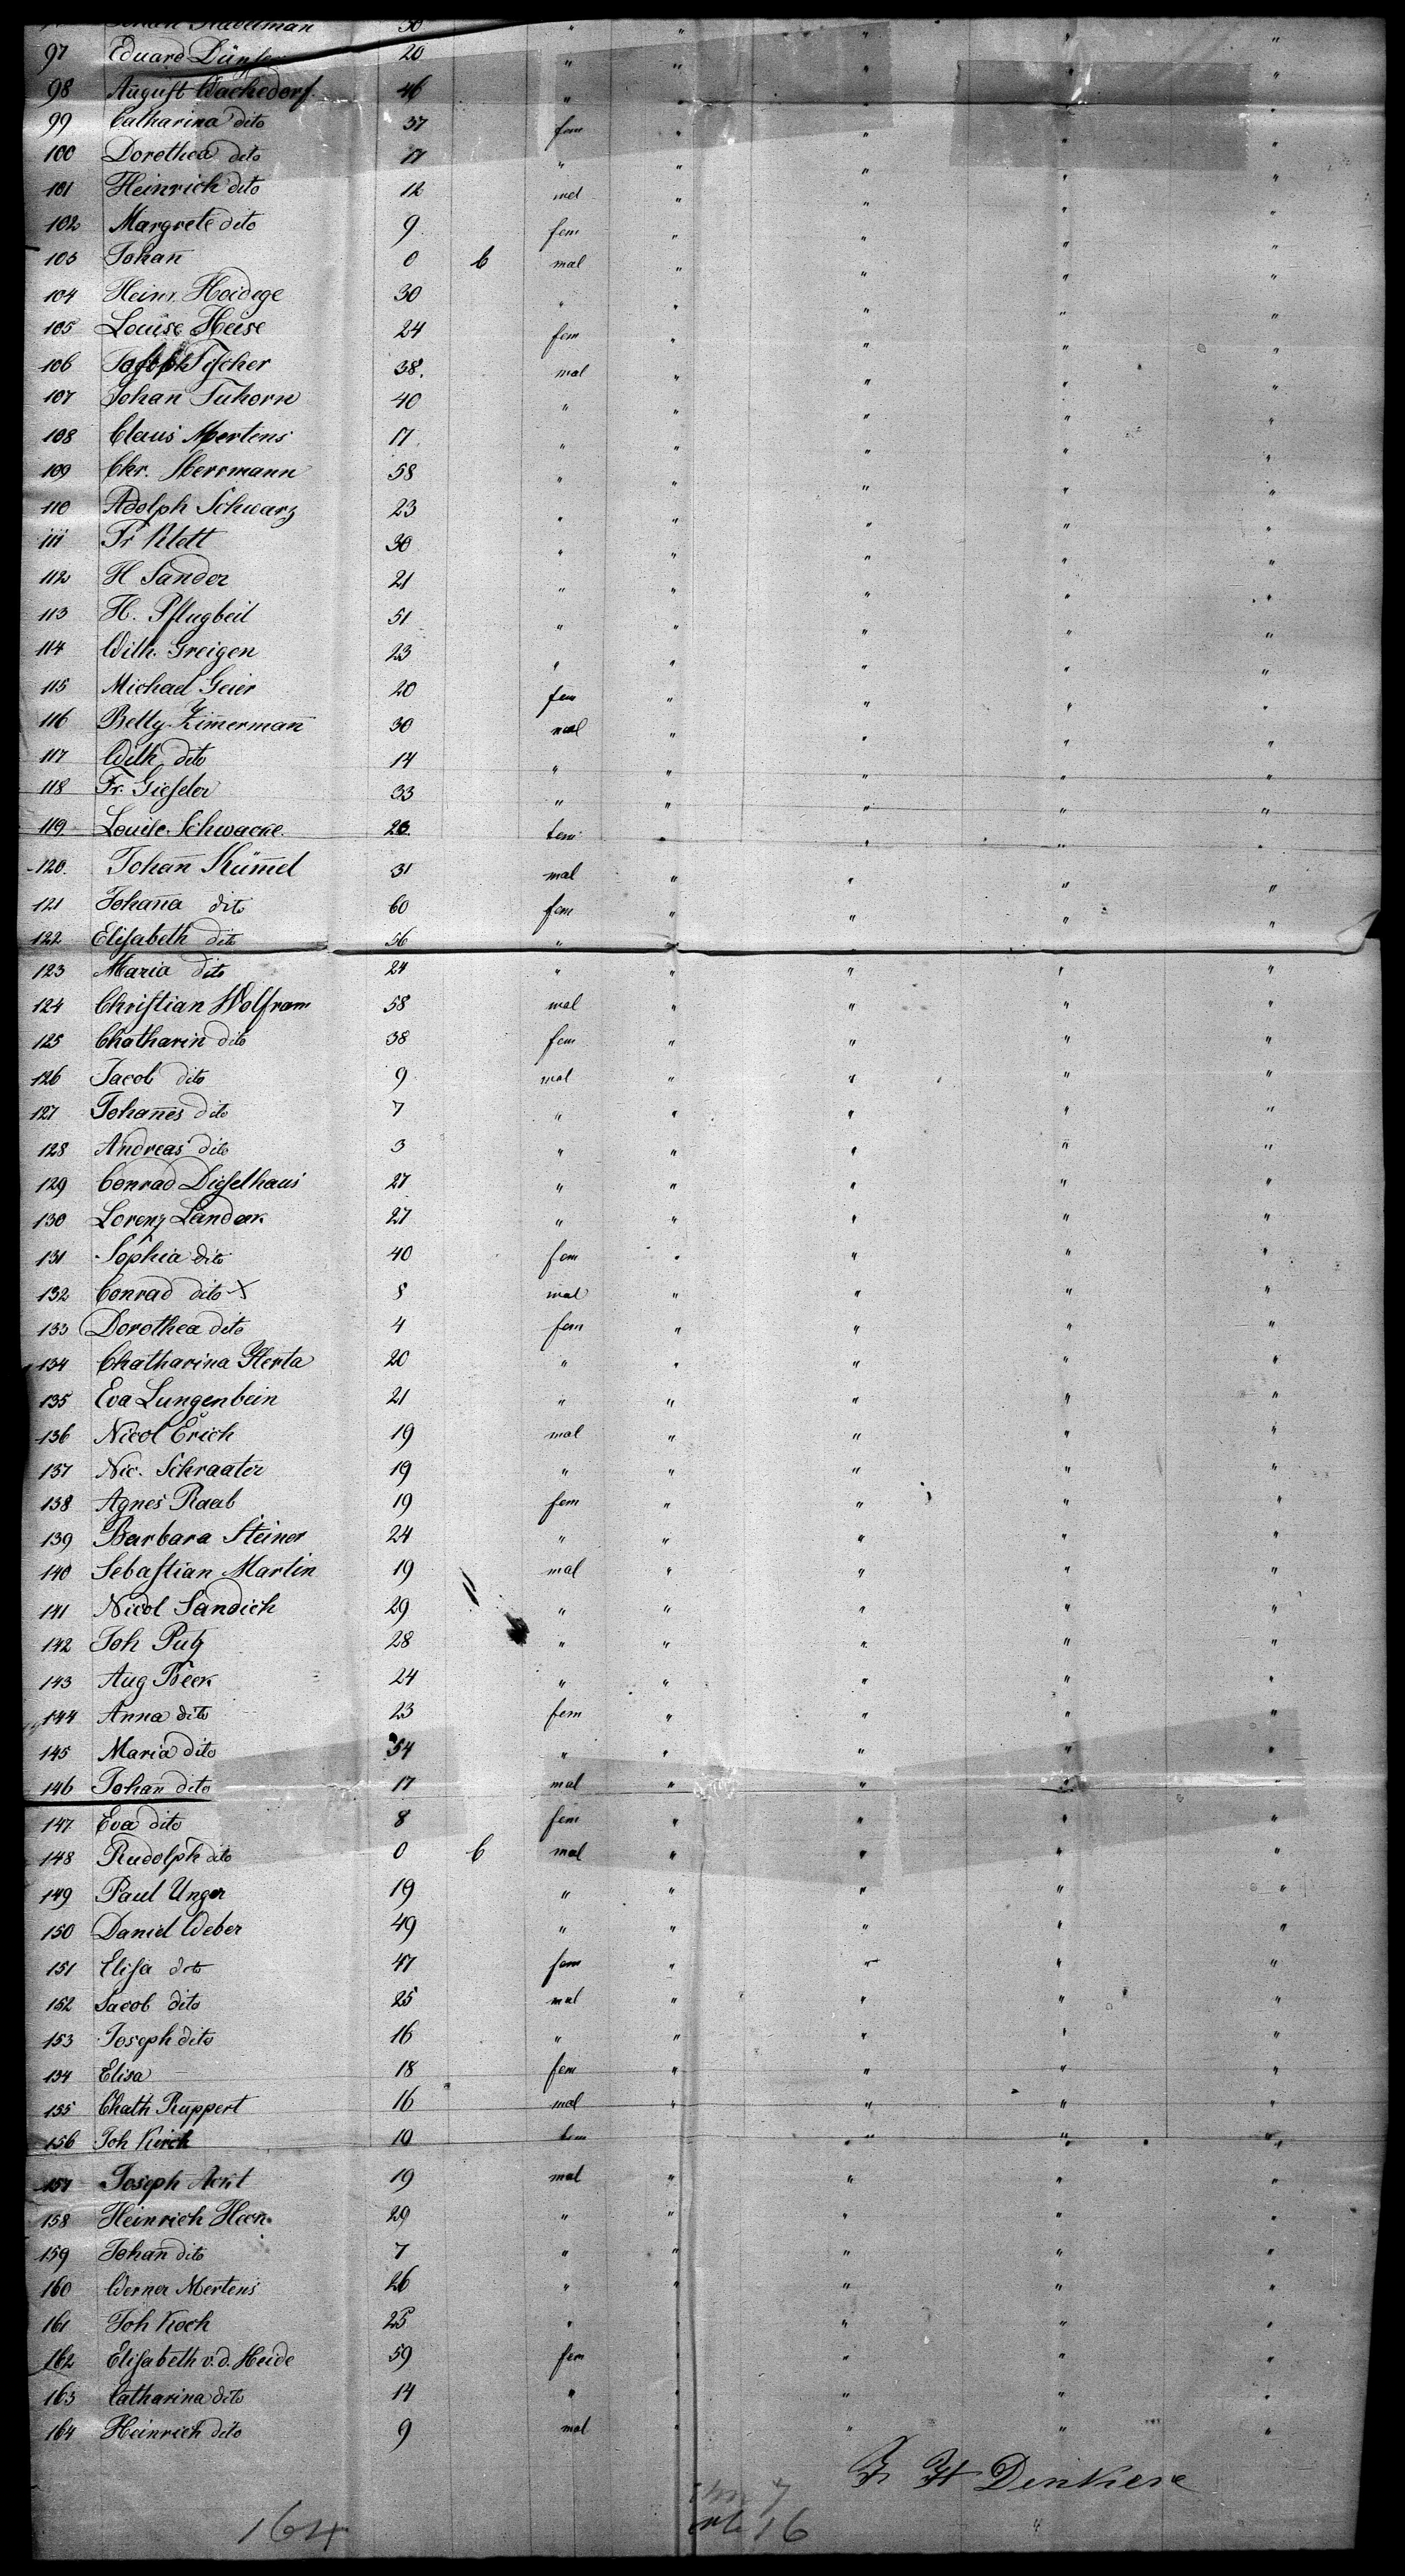 30 " " " " "
97 Eduard 20 " " " " "
98 August Wachedorf. 46 " " " " "
99 Catharina dito 37 fem " " " "
100 Dorethea dito 17 " " " " "
101 Heinrich dito 12 mal " " " "
102 Margrete dito 9 fem " " " "
103 Johan̄ 0 6 mal " " " "
104 Heinr. Hoidege 30 " " " " "
105 Louise Heise 24 fem " " " "
106 Tischer 38. mal " " " "
107 Johan̄ Tuhorn 40 " " " " "
108 Claus Mertens 17 " " " " "
109 Chr. Herrmann 58 " " " " "
110 Adolph Schwarz 23 " " " " "
111 Fr Klett 30 " " " " "
112 H Sander 21 " " " " "
113 H. Pflugbeil 51 " " " " "
114 Wilh. Greigen 23 " " " " "
115 Michael Geier 20 fem " " " "
116 Betty Zim̄erman̄ 30 mal " " " "
117 Wilh. dito 14 " " " " "
118 Fr. Gieseler 33 " " " " "
119 Louise Schwacke. 26. fem " " " "
120. Johan̄ Küm̄el 31 mal " " " "
121 Johan̄a dito 60 fem " " " "
122 Elisabeth dito 56 " "
123 Maria dito 24 " " " " "
124 Christian Wolfram 58 mal " " " "
125 Chatharin dito 38 fem " " " "
126 Jacob dito 9 mal " " " "
127 Johan̄es dito 7 " " " " "
128 Andreas dito 3 " " " " "
129 Conrad Dieselhaus 27 " " " " "
130 Lorenz Landeck 27 " " " " "
131 Sophia dito 40 fem " " " "
132 Conrad dito X 8 mal " " " "
133 Dorothea dito 4 fem " " " "
134 Chatharina Herta 20 " " " " "
135 Eva Lungenbein 21 " " " " "
136 Nicol Erich 19 mal " " " "
137 Nic. Schraater 19 " " " " "
138 Agnes Raab 19 fem " " " "
139 Barbara Steiner 24 " " " " "
140 Sebastian Martin 19 mal " " " "
141 Nicol Sandich 29 " " " " "
142 Joh Putz 28 " " " " "
143 Aug Beek 24 " " " " "
144 Anna dito 23 fem " " " "
145 Maria dito 54 " " " " "
146 Johan̄ dito 17 mal " " " "
147 Eva dito 8 fem " " " "
148 Rudolph dito 0 6 mal " " " "
149 Paul Unger 19 " " " " "
150 Daniel Weber 49 " " " " "
151 Elisa dito 47 fem " " " "
152 Jacob dito 25 mal " " " "
153 Joseph dito 16 " " " " "
154 Elisa 18 fem " " " "
155 Chath Ruppert 16 mal " " " "
156 Joh Kirch 19 fem " " "
157 Joseph 19 mal " " " "
158 Heinrich Heen 29 " " " " "
159 Johan̄ dito 7 " " " " "
160 Werner Mertens 26 " " " " "
161 Joh Koch 25 " " " " "
162 Elisabeth v.d. Heide 59 fem " " " "
163 Catharina dito 14 " " " " "
164 Heinrich dito 9 mal " " " "
F H Denkere
164 16